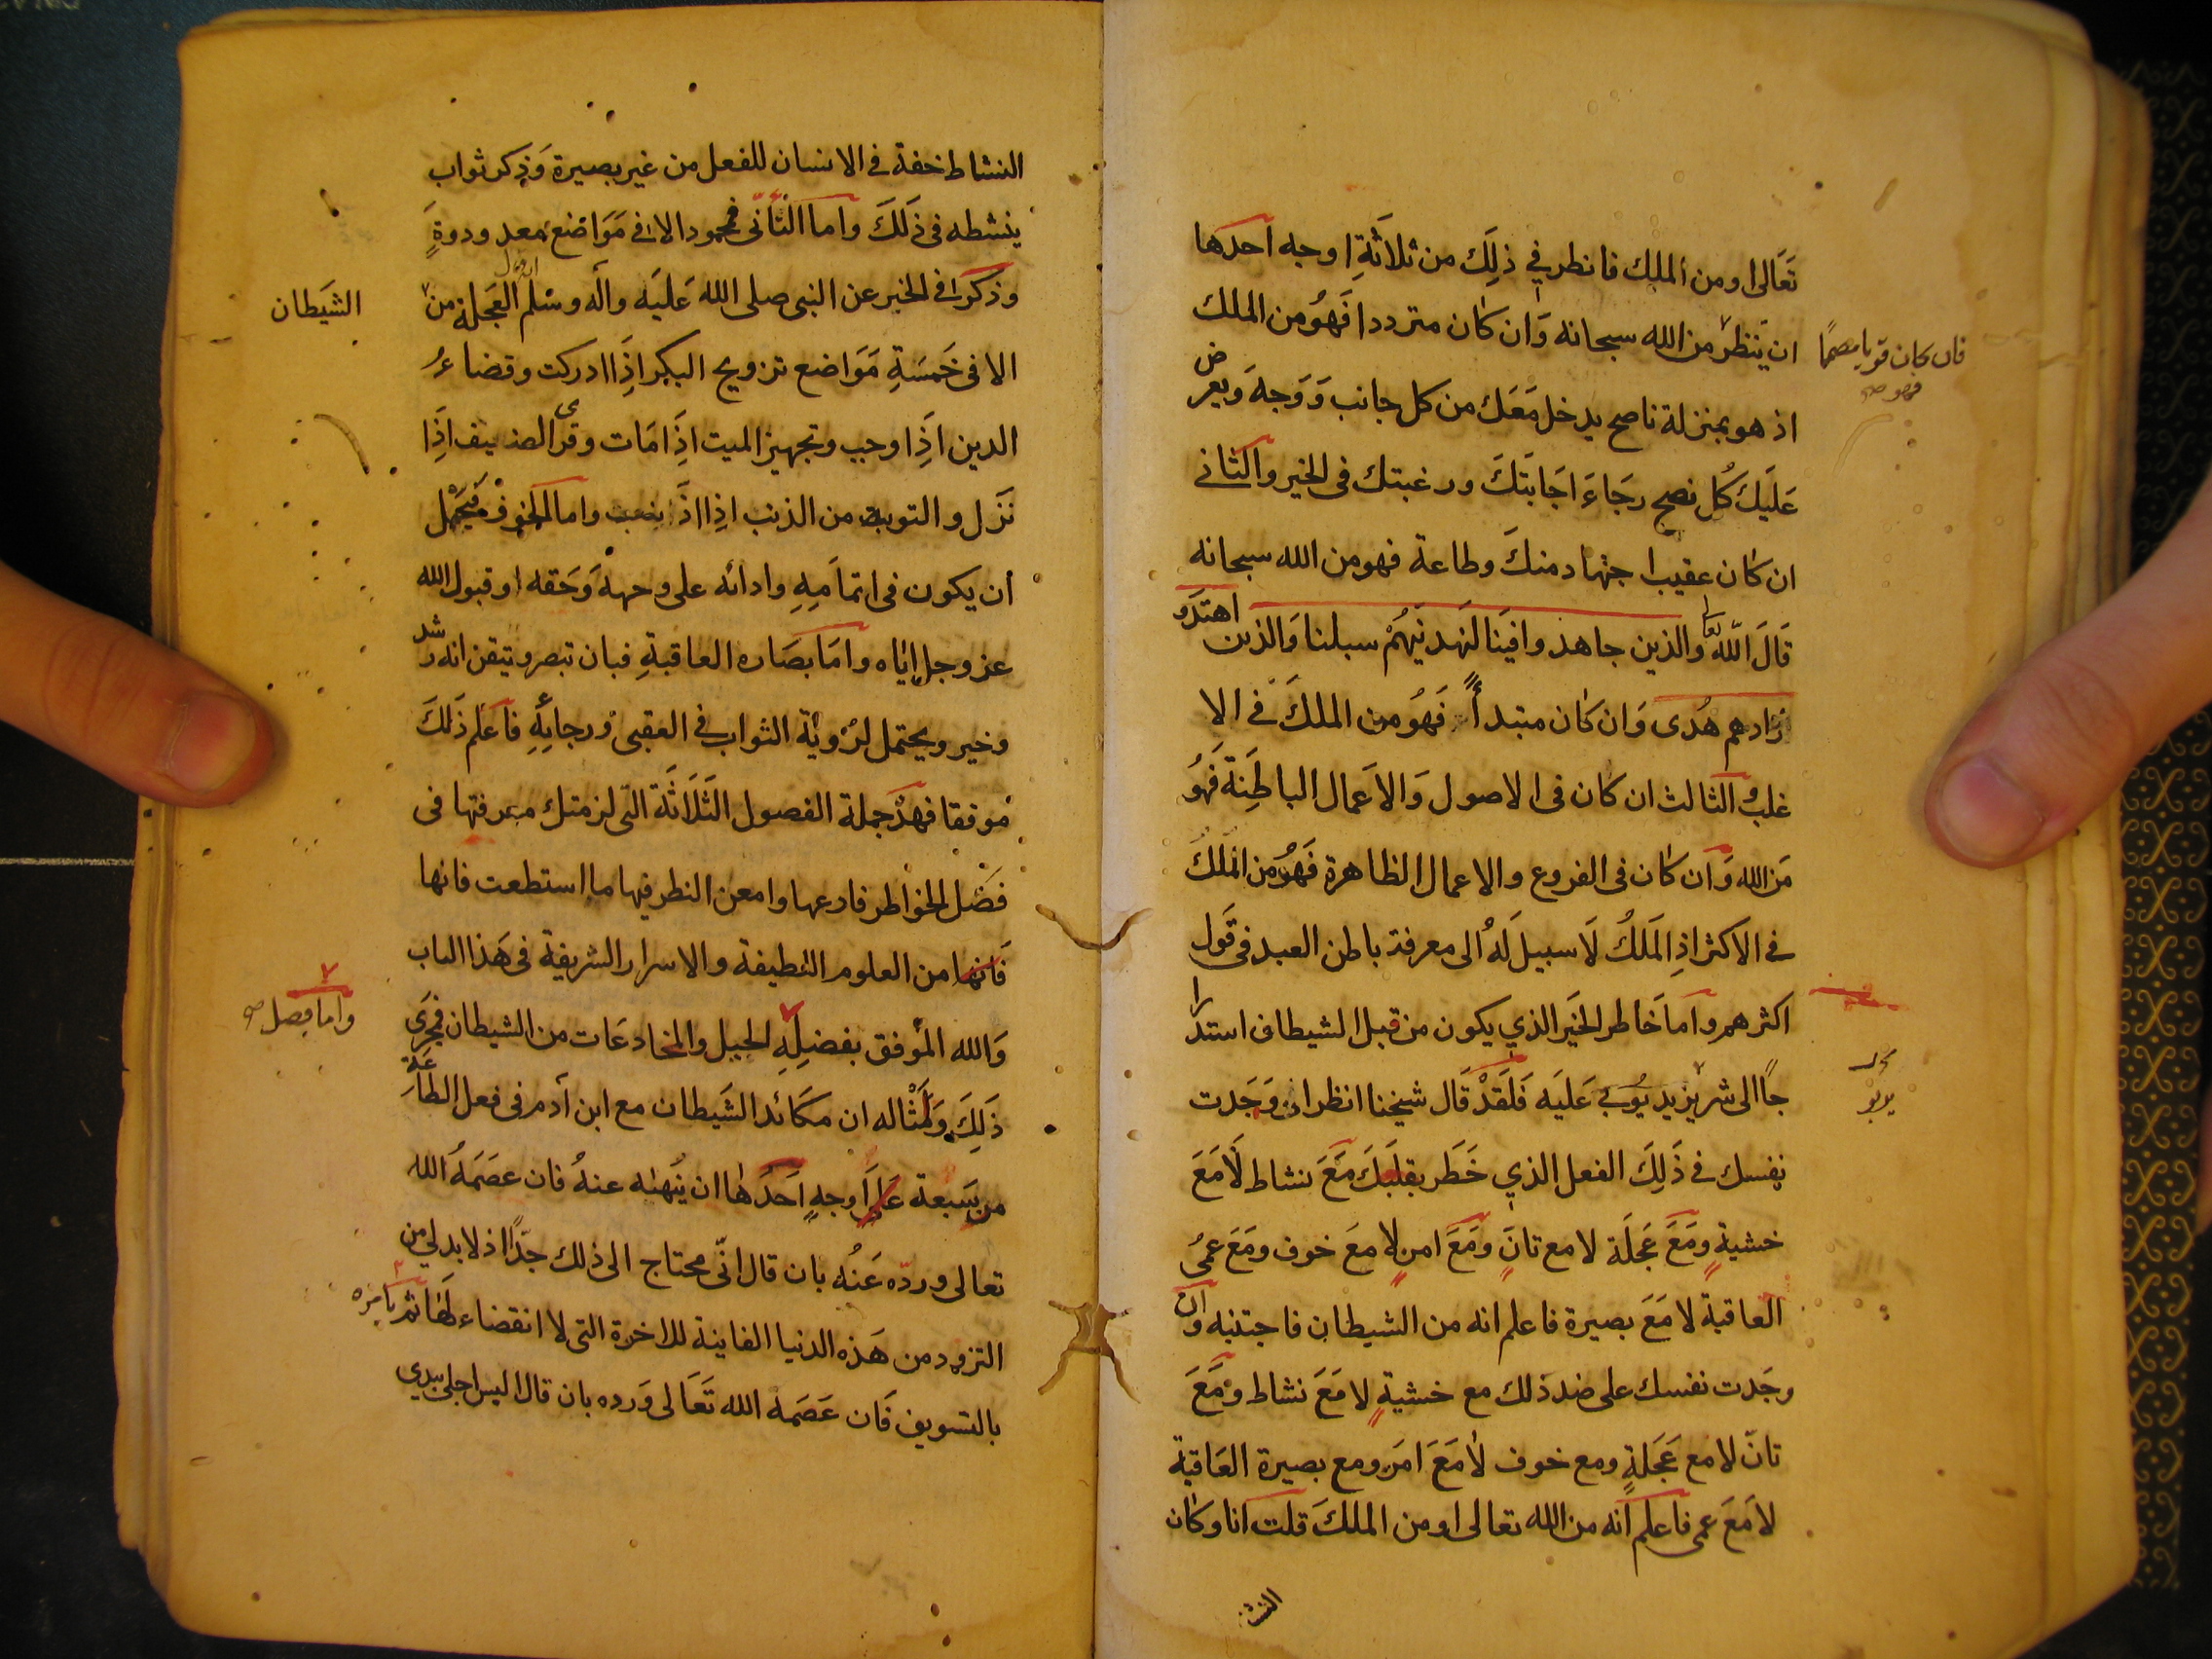 تعالى او من الملك فانظر في ذلك من ثلاثة اوجه احدها
ان ينظر من الله سبحانه وان كان مترددا فهو من الملك
فان كان قويا مصمما
فهو صح
اذ هو بمنزلة ناصح يدخل معك من كل جانب ووجه ويعرض
عليك كل نصح رجاء اجابتك ورغبتك في الخير والثاني
ان كان عقيب اجتهاد منك وطاعة فهو من الله سبحانه
قال الله تعا والذين جاهدوا فينا لنهدينهم سبلنا والذين اهتدو
زادهم هدى وان كان مبتدأ فهو من الملك في الا
غلب والثالث ان كان في الاصول والاعمال الباطنة فهو
من الله وان كان في الفروع والاعمال الظاهرة فهو من الملك
في الاكثر اذ الملك لا سبيل له الى معرفة باطن العبد في قول
اكثرهم واما خاطر الخير الذي يكون من قبل الشيطان استدرا
جا الى شر يزيد يوبي عليه فلقد قال شيخنا انظر ان وجدت
نفسك في ذلك الفعل الذي خطر بقلبك مع نشاط لا مع
خشية ومع عجلة لا مع تان ومع امن لا مع خوف ومع عمى
العاقبة لا مع بصيرة فاعلم انه من الشيطان فاجتنبه وان
وجدت نفسك على ضد ذلك مع خشية لا مع نشاط ومع
تان لا مع عجلة ومع خوف لا مع امن ومع بصيرة العاقبة
لا مع عمى فاعلم انه من الله تعالى او من الملك قلت انا وكان
النشا
النشاط خفة في الانسان للفعل من غير بصيرة وذكر ثواب
ينشطه في ذلك واما التأنى فمحمود الا في مواضع معدودة
وذكر في الخبر عن النبي صلى الله عليه واله وسلم العجلة من
الشيطان
الا في خمسة مواضع تزويج البكر اذا ادركت وقضاء
الدين اذا وجب وتجهيز الميت اذا مات وقرى الضيف اذا
نزل والتوبة من الذنب اذا اذنبت واما الخوف فيحتمل
ان يكون في اتمامه وادائه على وجهه وحقه او قبول الله
عز وجل اياه واما بصاره العاقبة فبان تبصر وتيقن انه رشد
وخير ويحتمل لرؤية الثواب في العقبى ورجائه فاعلم ذلك
موفقا فهذ جملة الفصول الثلاثة التى لزمتك معرفتها في
فصل الخواطر فارعها وامعن النظر فيها ما استطعت فانها
فانها من العلوم اللطيفة والاسرار الشريفة في هذا الباب
والله الموفق بفضله الجميل والمخادعات من الشيطان فجرى
واما فصل صح
ذلك ومثاله ان مكائد الشيطان مع ابن آدم في فعل الطاعة
من سبعة على اوجه احدها ان ينهيه عنه فان عصمه الله
تعالى ورده عنه بان قال انى محتاج الى ذلك جدا اذ لابد لى من
التزود من هذه الدنيا الفانية للاخرة التى لا انقضاء لها ثم يامره
بالتسويف فان عصمه الله تعالى ورده بان قال اليس اجلى بيدي